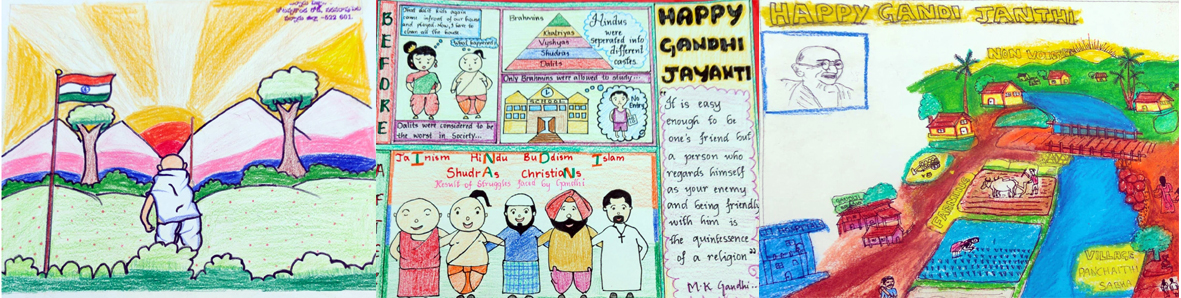 -522 601.
BEFORE
dalit kids again
came infront of our house
and played. Now, I have to
clean all the house.
What happened?
Dalits were considered to be
the worst in Society...
Brahmins
Khatriyas
Vyshyas
Shudras
Dalits
Hindus
were
seperated into
different
castes.
Only Brahmins were allowed to study...
SCHOOL
No
Entry
AF
JaInism HiNdu BuDdism Islam
ShudrAs ChristioNs
Result of Struggles faced by Gandhi
HAPPY
GANDHI
JAYANTI
"It is easy
enough to be
one's friend but
a person who
regards himself
as your enemy
and being friendly
with him is
the quintessence
of a religion"
M.K Gandhi...
HAPPY GANDI JANTHI
NON VOILENCE
FARMING
VILLAGE
PANCHAITHI
SABHA